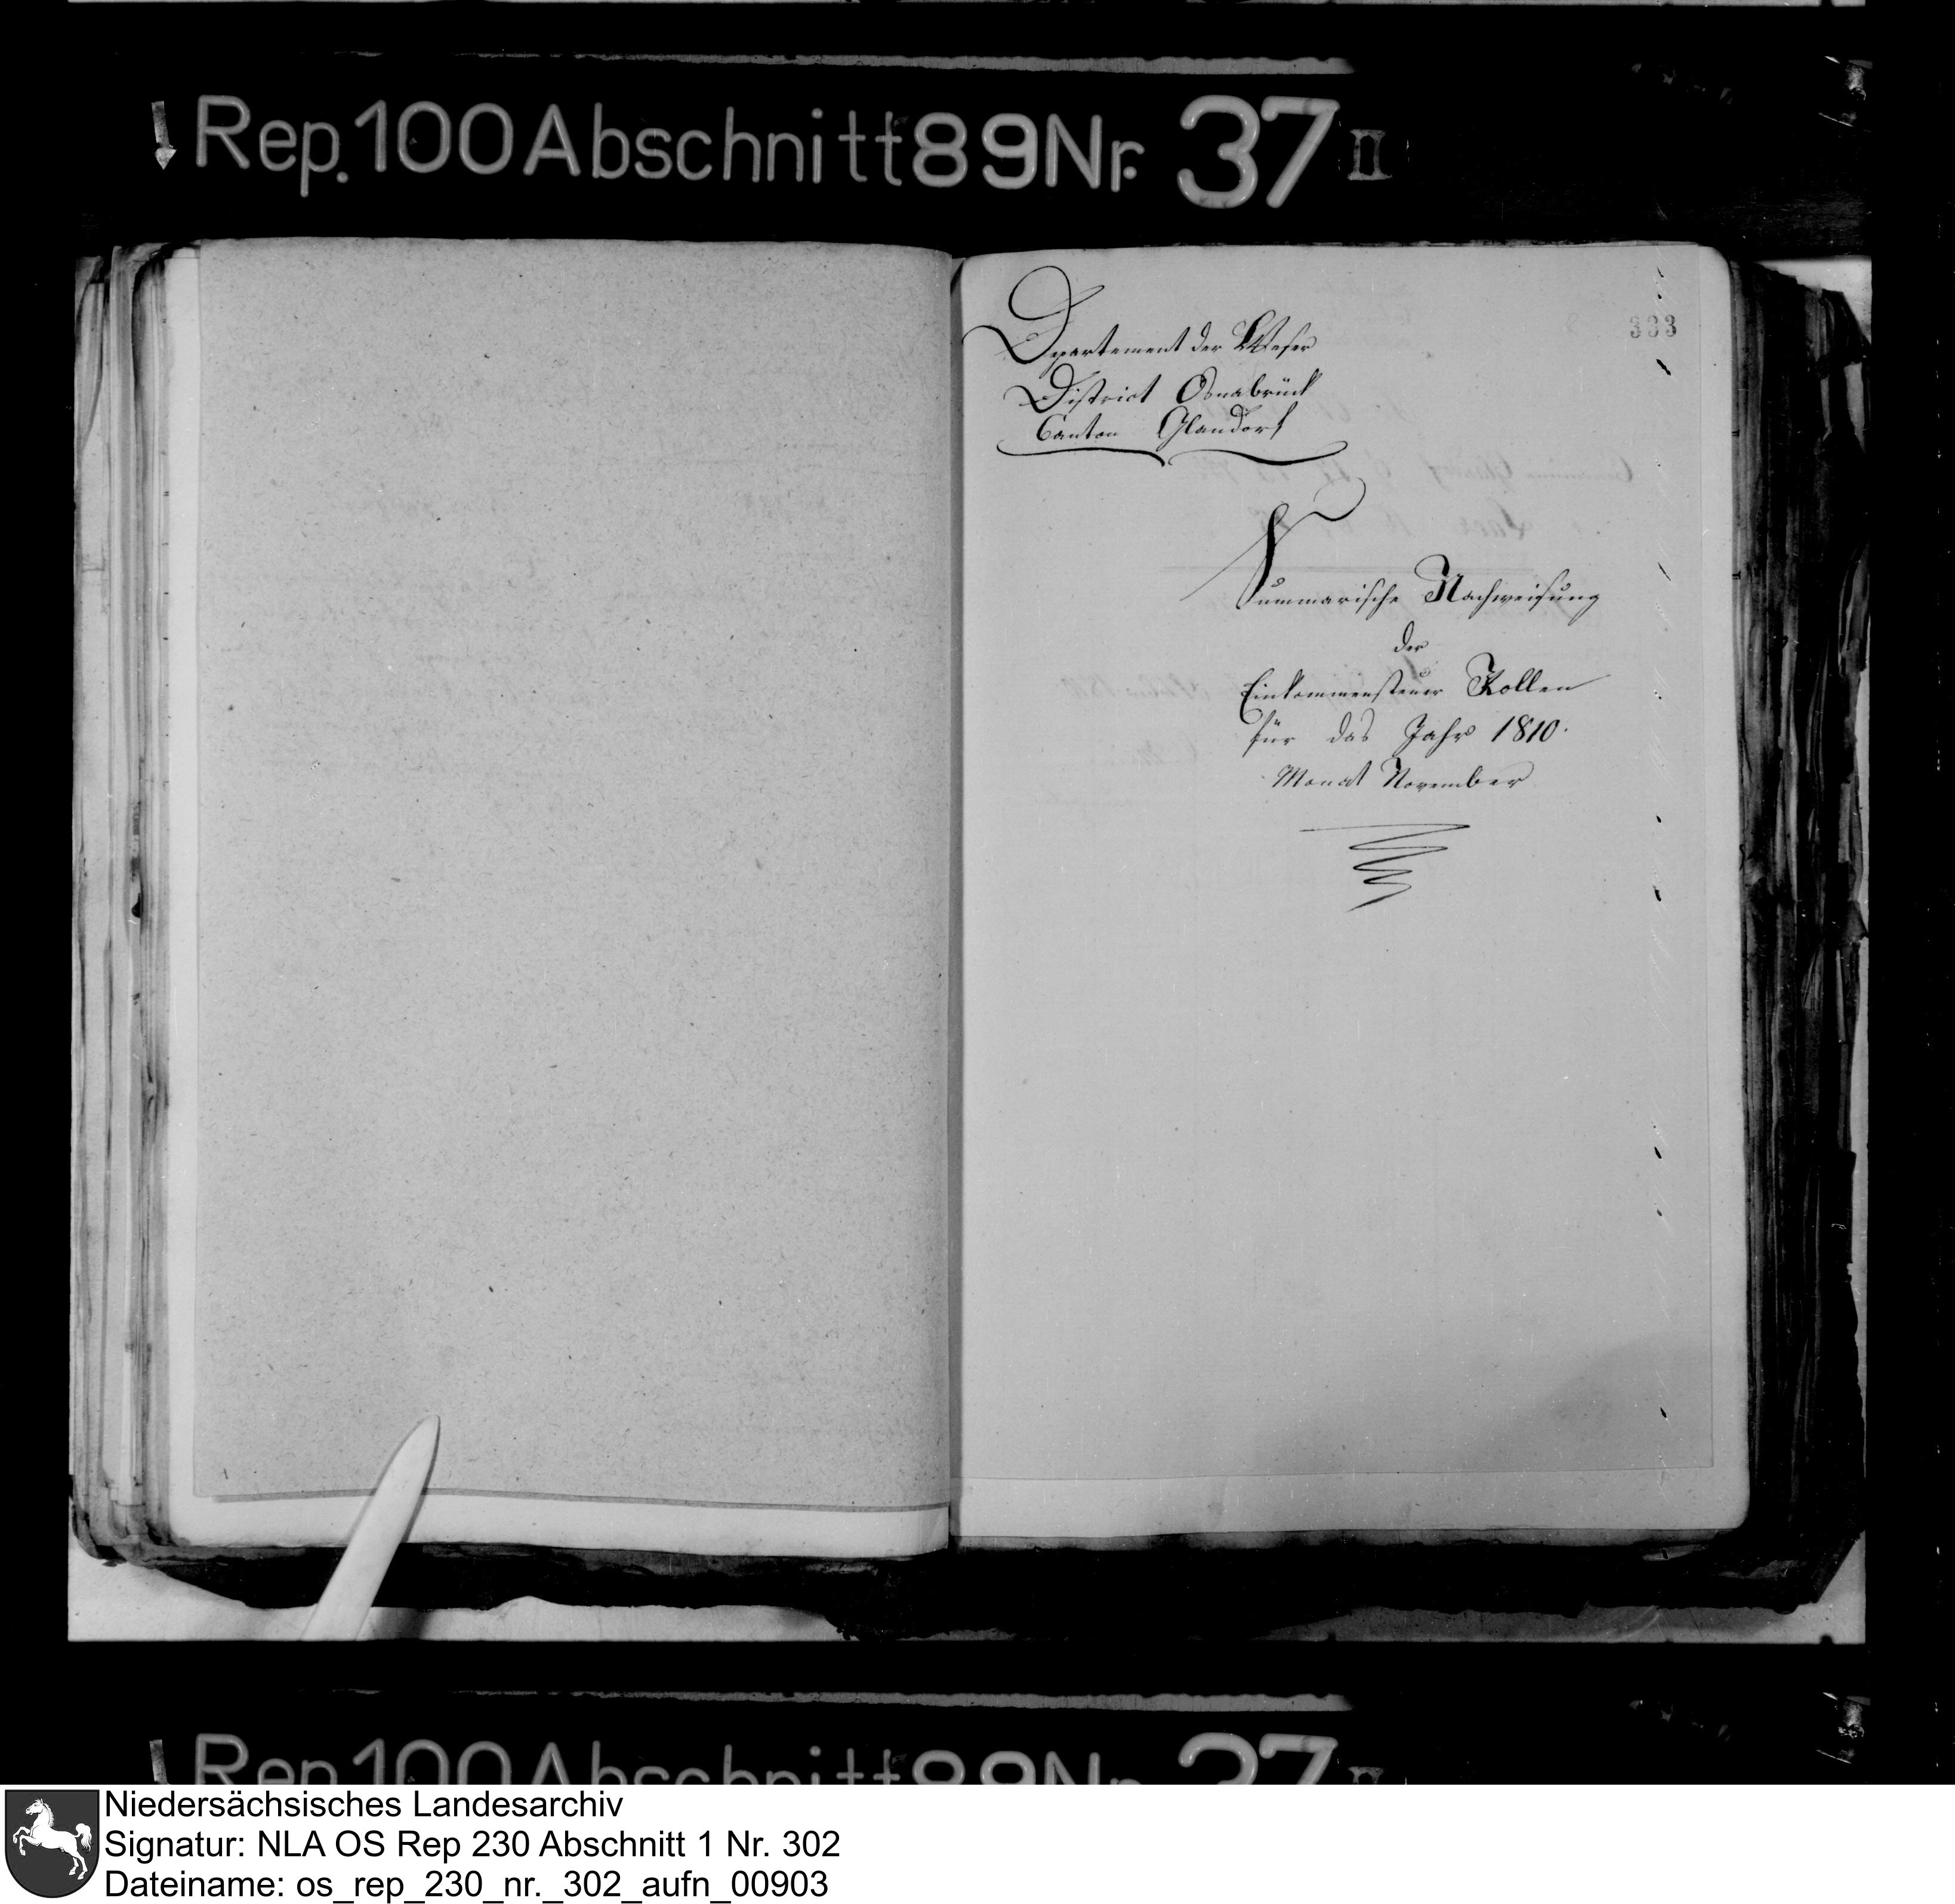 Rep. 100 Abschnitt 89 Nr. 37 II
333
Departement der Weser
District Osnabrück
Canton Glandorf
Summarische Nachweisung
der
Einkommensteuer Rollen
für das Jahr 1810.
Monat November
Rep. 100 Abschnitt 89 Nr. 37 II
Niedersächsisches Landesarchiv
Signatur: NLA OS Rep 230 Abschnitt 1 Nr. 302
Dateiname: os_rep_230_nr._302_aufn_00903